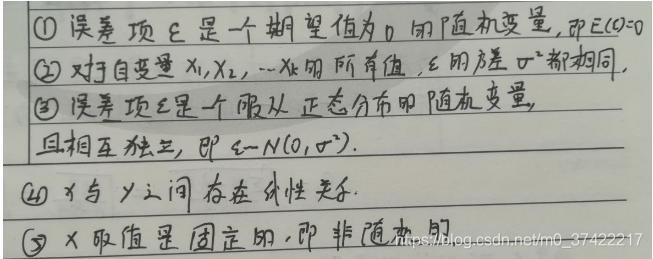 ① 误差项 ε 是一个期望值为 0 的随机变量, 即 E(ε)=0
② 对于自变量 X1, X2, …Xk 的所有值, ε 的方差 σ² 都相同.
③ 误差项 ε 是一个服从正态分布的随机变量,
且相互独立, 即 ε~N(0, σ²).
④ x 与 y 之间存在线性关系.
⑤ X 取值是固定的, 即非随机的
https://blog.csdn.net/m0_37422217